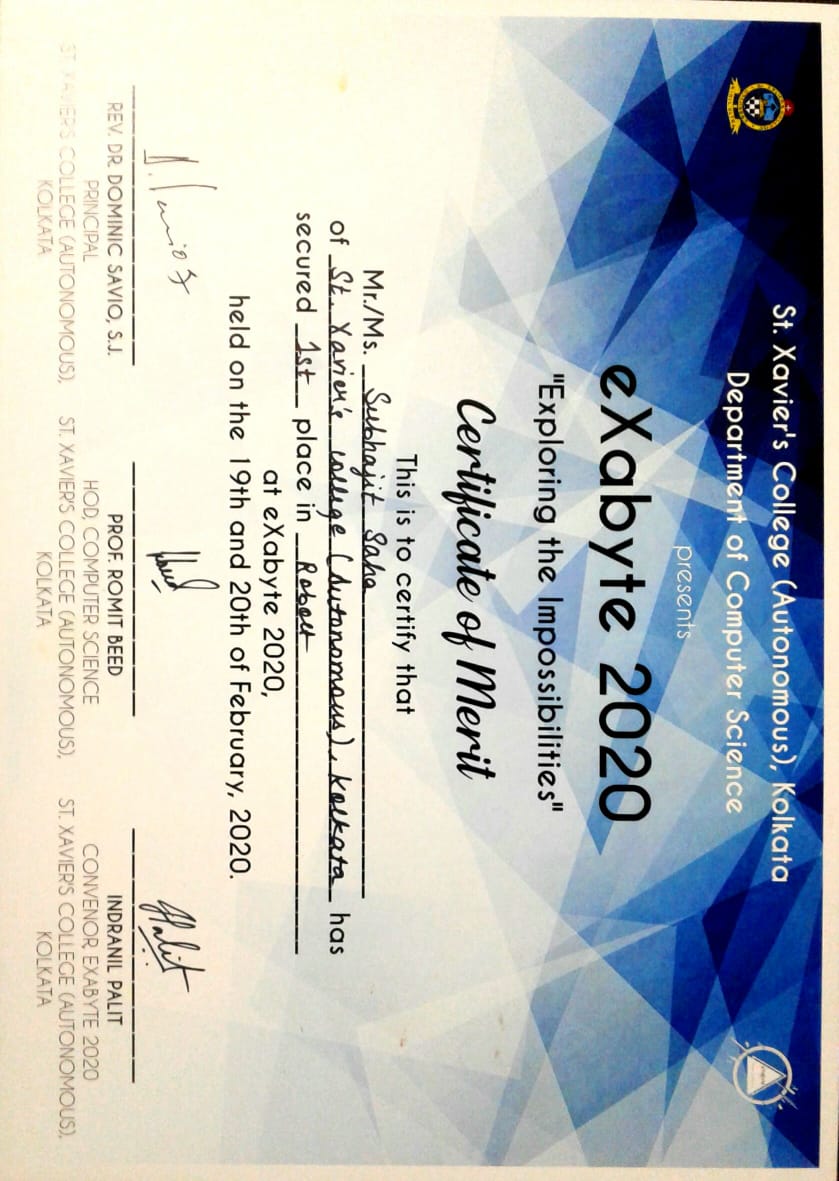 St. Xavier's College (Autonomous), Kolkata
Department of Computer Science
presents
eXabyte 2020
"Exploring the Impossibilities"
Certificate of Merit
This is to certify that
Mr./Ms. Subhajit Saha
of St. Xavier's college (Autonomous), Kolkata has
secured 1st place in
at eXabyte 2020,
held on the 19th and 20th of February, 2020.
REV. DR. DOMINIC SAVIO, S.J.
PRINCIPAL
ST. XAVIER'S COLLEGE (AUTONOMOUS),
KOLKATA
PROF. ROMIT BEED
HOD, COMPUTER SCIENCE
ST. XAVIER'S COLLEGE (AUTONOMOUS),
KOLKATA
INDRANIL PALIT
CONVENOR, EXABYTE 2020
ST. XAVIER'S COLLEGE (AUTONOMOUS),
KOLKATA